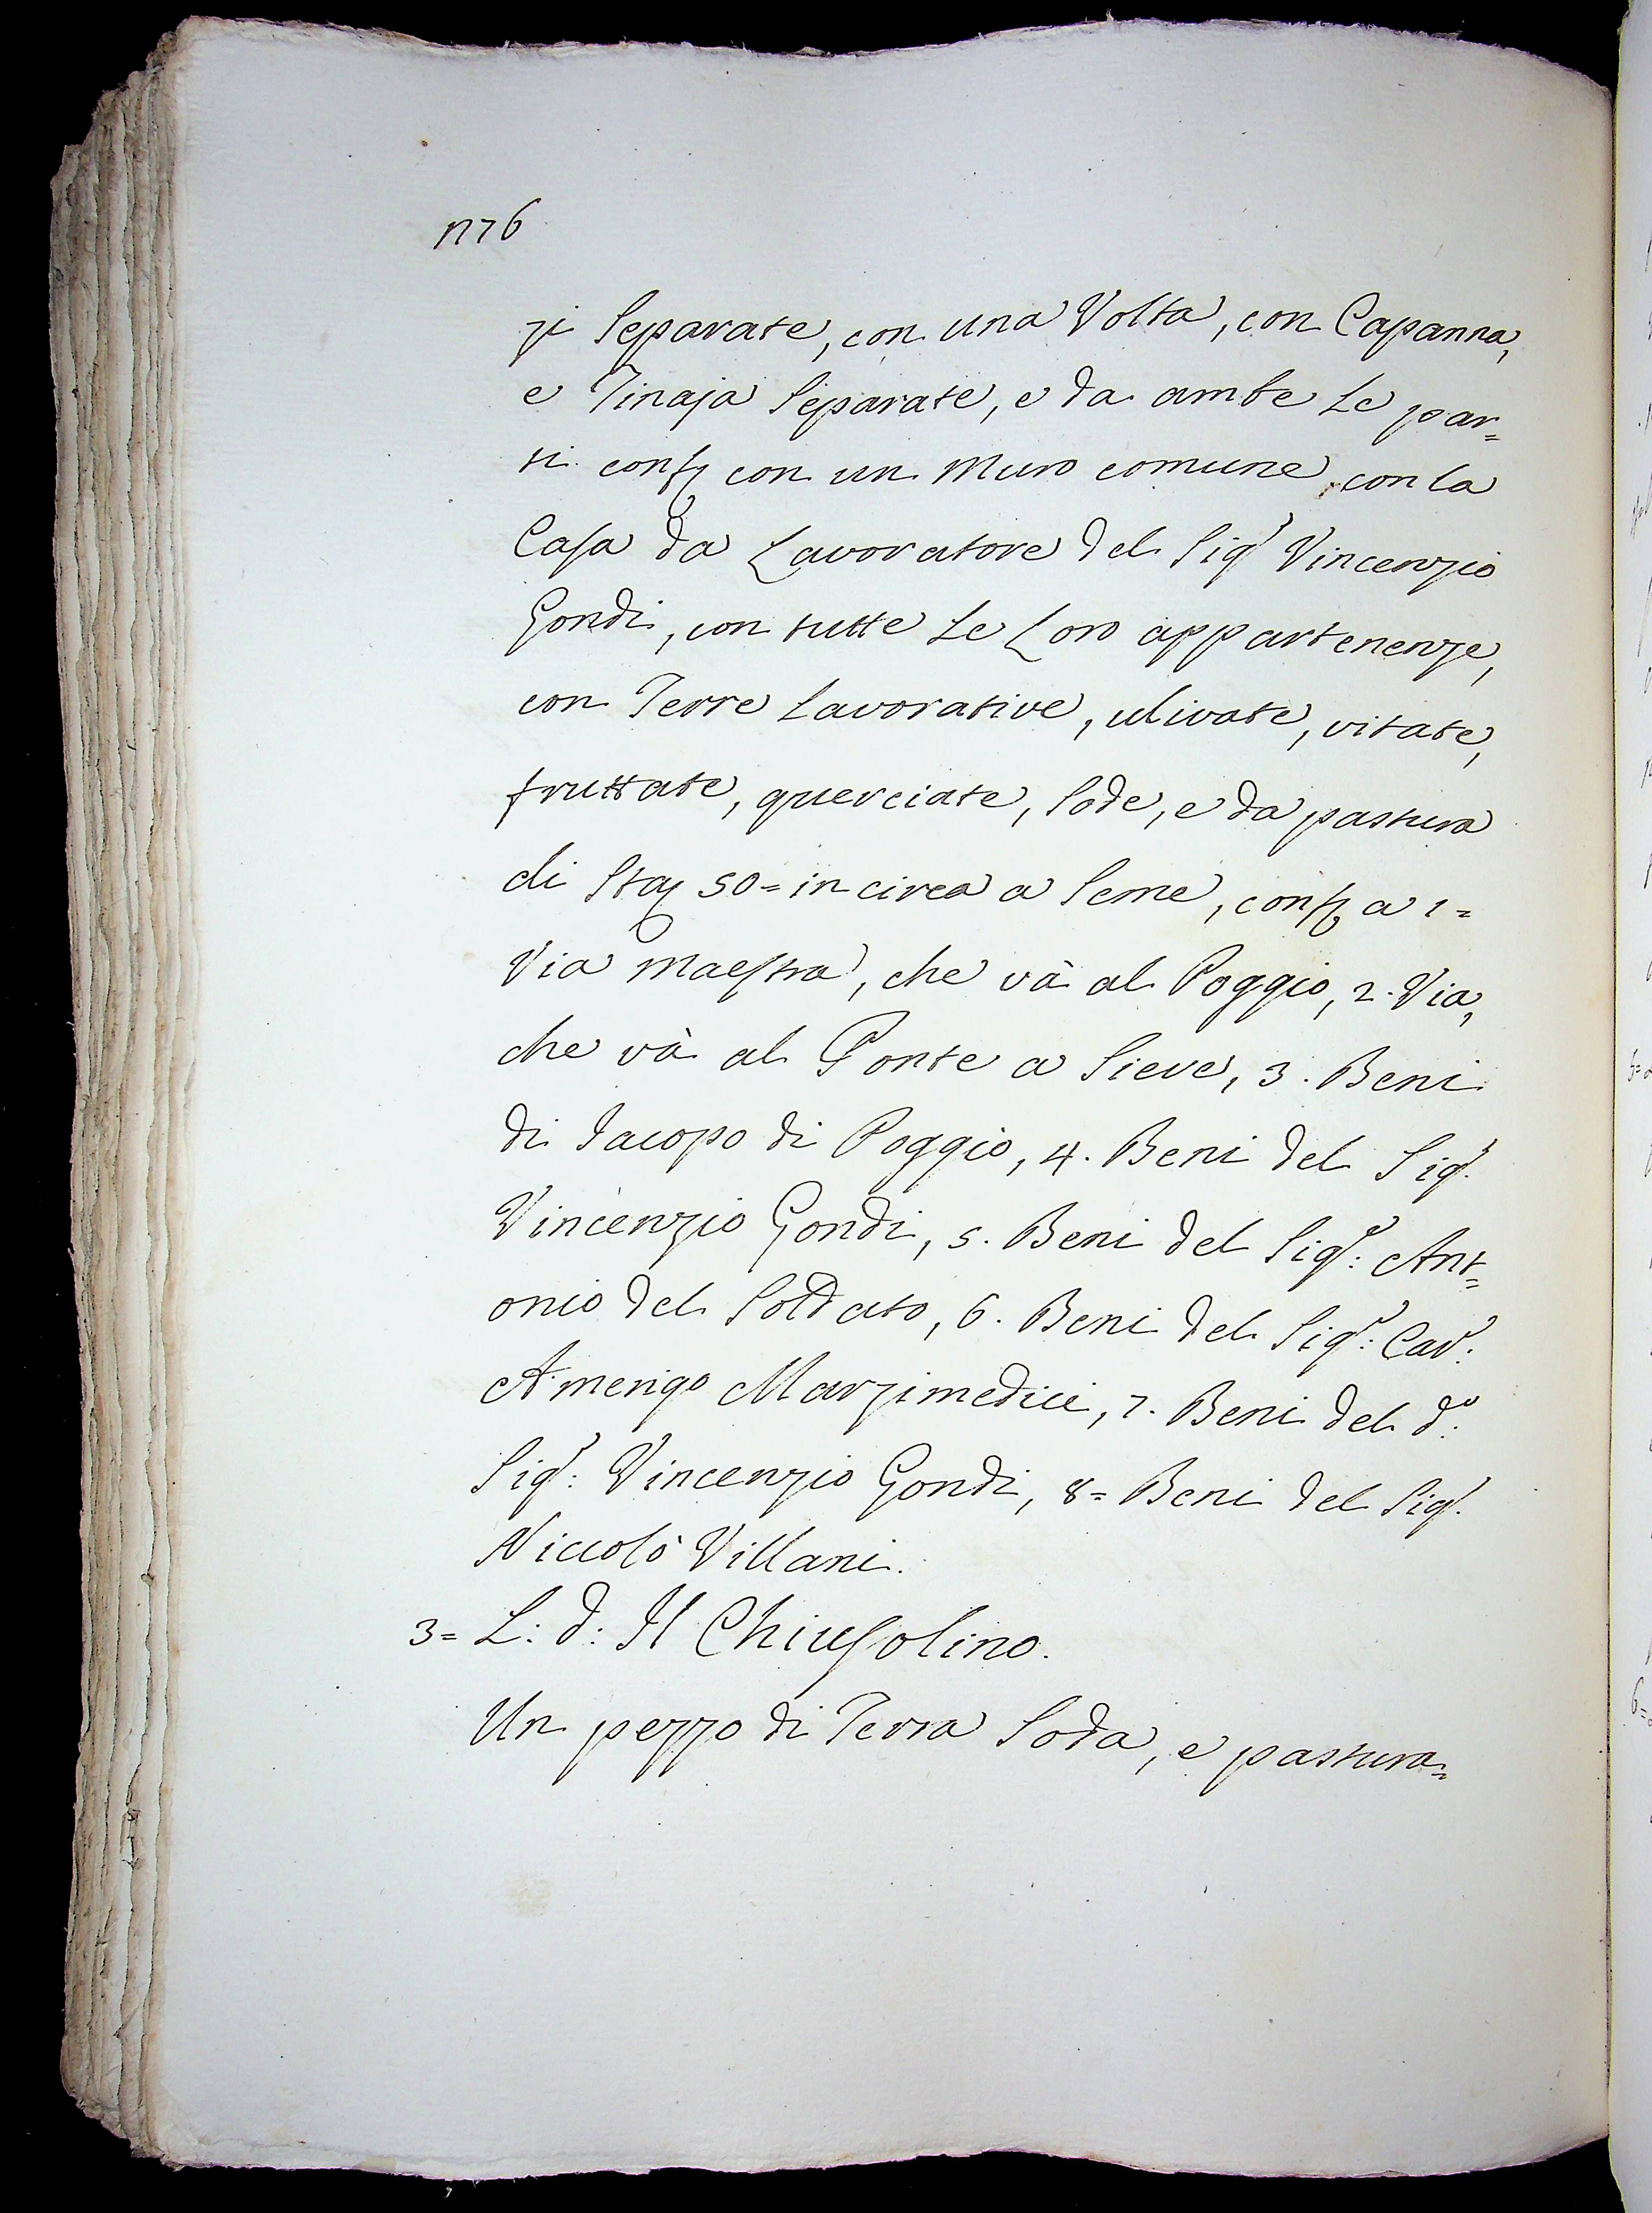 1176
zi Separate, con una Volta, con Capanna,
e Tinaja Separate, e da ambe Le par=
ti conf; con un Muro comune, con la
Casa da Lavoratore del Sig.r Vincenzio
Gondi, con tutte Le Loro appartenenze,
con Terre Lavorative, ulivate, vitate,
fruttate, querciate, Sode, e da pastura
di Staj 50= in circa a Seme, conf; a 1=
Via Maestra, che và al Poggio, 2. Via,
che và al Ponte a Sieve, 3. Beni
di Jacopo di Poggio, 4. Beni del Sig.r
Vincenzio Gondi, 5. Beni del Sig.r: Ant=
onio del Soldato, 6. Beni del Sig.r: Cav.r:
Amerigo Marzimedici, 7. Beni del d.o:
Sig.r: Vincenzio Gondi, 8= Beni del Sig.r
Niccolò Villani.
3= L: d: Il Chiusolino.
Un pezzo di Terra Soda, e pastura=